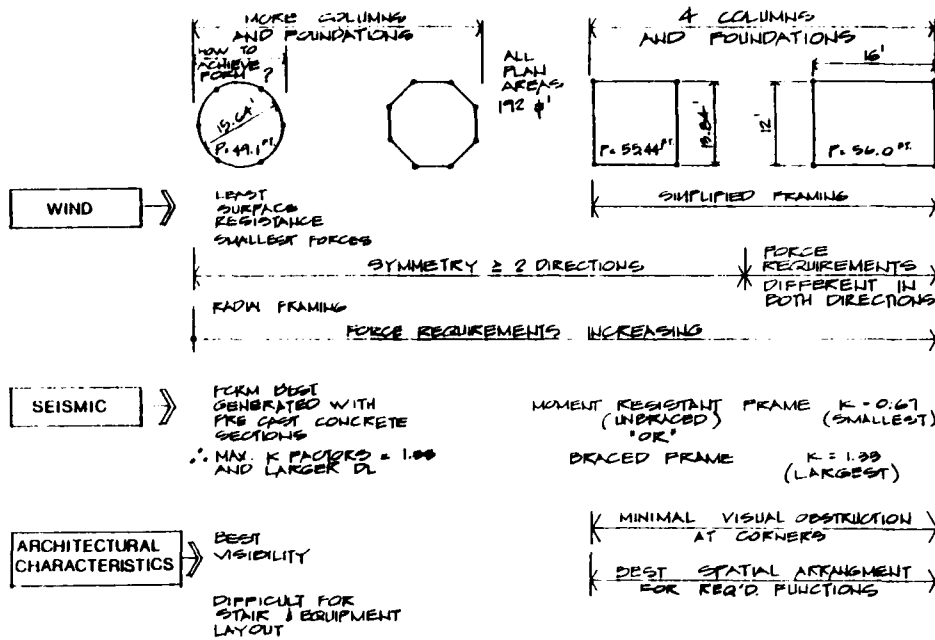 MORE COLUMNS
AND FOUNDATIONS
HOW TO
ACHIEVE
FORM ?
15.64'
P= 49.1 FT.
ALL
PLAN
AREAS
192 ϕ'
4 COLUMNS
AND FOUNDATIONS
16'
P= 55.44 FT.
13.84'
12'
P= 56.0 FT.
WIND
LEAST
SURFACE
RESISTANCE
SMALLEST FORCES
SIMPLIFIED FRAMING
SYMMETRY ≥ 2 DIRECTIONS
FORCE
REQUIREMENTS
DIFFERENT IN
BOTH DIRECTIONS
RADIAL FRAMING
FORCE REQUIREMENTS INCREASING
SEISMIC
FORM BEST
GENERATED WITH
PRE CAST CONCRETE
SECTIONS
∴ MAX. K FACTORS = 1.33
AND LARGER DL
MOMENT RESISTANT FRAME K = 0.67
(UNBRACED) (SMALLEST)
"OR"
BRACED FRAME K = 1.33
(LARGEST)
ARCHITECTURAL
CHARACTERISTICS
BEST
VISIBILITY
DIFFICULT FOR
STAIR & EQUIPMENT
LAYOUT
MINIMAL VISUAL OBSTRUCTION
AT CORNERS
BEST SPATIAL ARRANGMENT
FOR REQ'D. FUNCTIONS